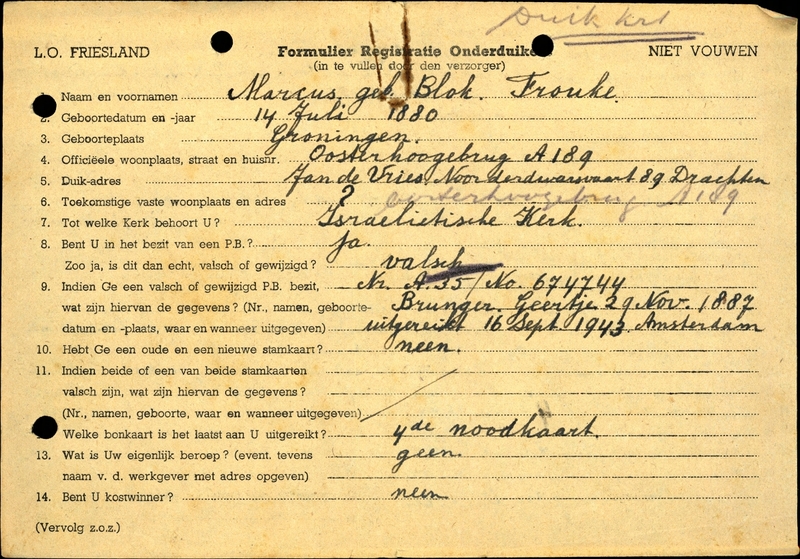 Duik krt
L.O. FRIESLAND Formulier Registratie Onderduike NIET VOUWEN
(in te vullen door den verzorger)
1. Naam en voornamen Marcus geb. Blok. Frouke.
2. Geboortedatum en -jaar 14 Juli 1880
3. Geboorteplaats Groningen.
4. Officiëele woonplaats, straat en huisnr. Oosterhoogebrug A 189
5. Duik-adres Jan de Vries, Noorderdwarsvaart 89 Drachten
6. Toekomstige vaste woonplaats en adres ? Oosterhoogebrug A 189
7. Tot welke Kerk behoort U? Israelietische Kerk.
8. Bent U in het bezit van een P.B.? ja.
Zoo ja, is dit dan echt, valsch of gewijzigd? valsch
9. Indien Ge een valsch of gewijzigd P.B. bezit, Nr. A.35/No. 674744
wat zijn hiervan de gegevens? (Nr., namen, geboorte- Brunger. Geertje 29 Nov. 1887
datum en -plaats, waar en wanneer uitgegeven) uitgereikt 16 Sept. 1943. Amsterdam
10. Hebt Ge een oude en een nieuwe stamkaart? neen.
11. Indien beide of een van beide stamkaarten
valsch zijn, wat zijn hiervan de gegevens?
(Nr., namen, geboorte, waar en wanneer uitgegeven)
Welke bonkaart is het laatst aan U uitgereikt? 4de noodkaart.
13. Wat is Uw eigenlijk beroep? (event. tevens geen.
naam v. d. werkgever met adres opgeven)
14. Bent U kostwinner? neen
(Vervolg z.o.z.)